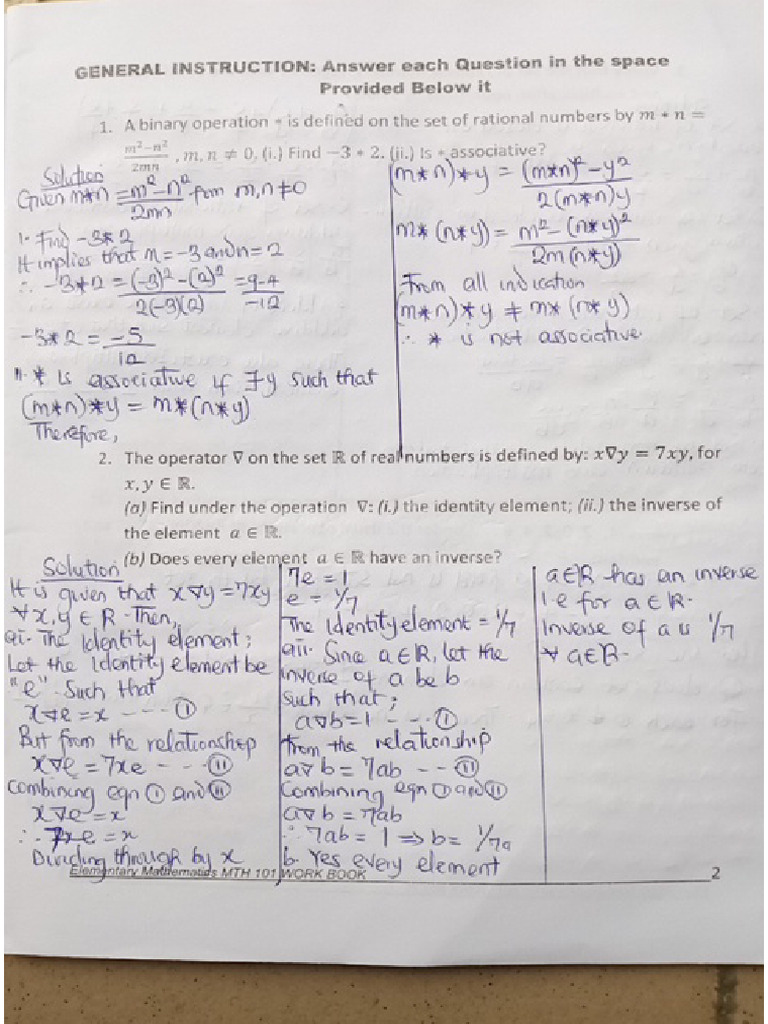 GENERAL INSTRUCTION: Answer each Question in the space
Provided Below it
1. A binary operation * is defined on the set of rational numbers by m * n =
m²−n²/2mn , m, n ≠ 0, (i.) Find −3 * 2. (ii.) Is * associative?
Solution
Given m*n = m²-n²/2mn for m,n ≠0
1. Find -3*2
It implies that m=-3 and n=2
∴ -3*2 = (-3)²-(2)²/2(-3)(2) = 9-4/-12
-3*2 = -5/12
11. * is associative if ∃y such that
(m*n)*y = m*(n*y)
Therefore,
(m*n)*y = (m*n)²-y²/2(m*n)y
m*(n*y) = m²-(n*y)²/2m(n*y)
From all indication
(m*n)*y ≠ m*(n*y)
∴ * is not associative
2. The operator ∇ on the set ℝ of real numbers is defined by: x∇y = 7xy, for
x, y ∈ ℝ.
(a) Find under the operation ∇: (i.) the identity element; (ii.) the inverse of
the element a ∈ ℝ.
(b) Does every element a ∈ ℝ have an inverse?
Solution
It is given that x∇y=7xy
∀x,y ∈ R. Then,
ai. The Identity element;
Let the Identity element be
"e". Such that
x∇e=x --- (I)
But from the relationship
x∇e=7xe --- (II)
Combining eqn (I) and (II)
x∇e=x
∴ 7xe=x
Dividing through by x
7e=1
e=1/7
The Identity element = 1/7
aii. Since a∈R, let the
inverse of a be b
such that;
a∇b=1 --- (I)
from the relationship
a∇b=7ab -- (II)
Combining eqn (I) and (II)
a∇b=7ab
∴ 7ab=1 ⇒ b=1/7a
b. Yes every element
a∈R has an inverse
i.e for a∈R.
Inverse of a is 1/7
∀ a∈R.
Elementary Mathematics MTH 101 WORK BOOK 2